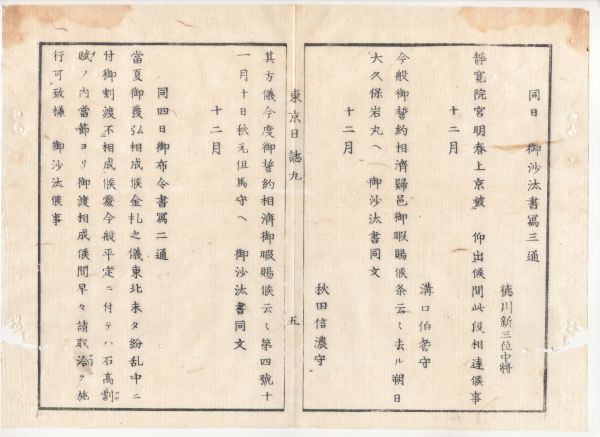 同日 御沙汰書寫三通
徳川新三位中將
靜寛院宮明春上京被 仰出候間此段相達候事
十二月
溝口伯耆守
今般御誓約相濟歸邑御暇賜候条云々去ル朔日
大久保岩丸ヘ 御沙汰書同文
十二月
秋田信濃守
東京日誌九
五
其方儀今度御誓約相濟御暇賜候云々第四號十
一月十日秋元但馬守ヘ 御沙汰書同文
十二月
同四日御布令書寫二通
當夏御發弘相成候金札之儀東北未タ紛乱中ニ
付御割渡不相成候處今般平定ニ付テハ石高割
賦ノ内當節ヨリ御渡相成候間早々請取洽ク施
行可致樣 御沙汰候事